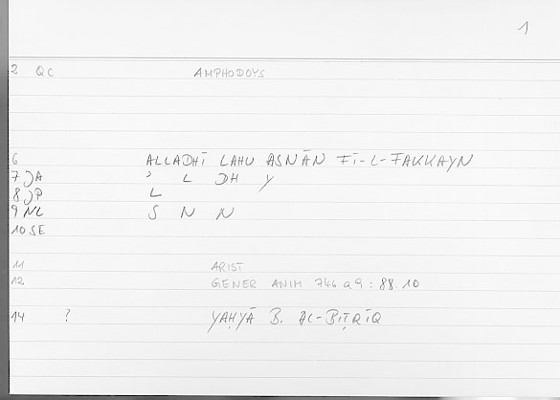 1
2 QC AMPHODOYS
6 ALLADHĪ LAHU ASNĀN FĪ-L-FAKKAYN
7 JA ʾ L DH Y
8 JP L
9 NL S N N
10 SE
11 ARIST
12 GENER ANIM 746 a 9 : 88.10
14 ? YAḤYĀ B. AL-BIṬRĪQ